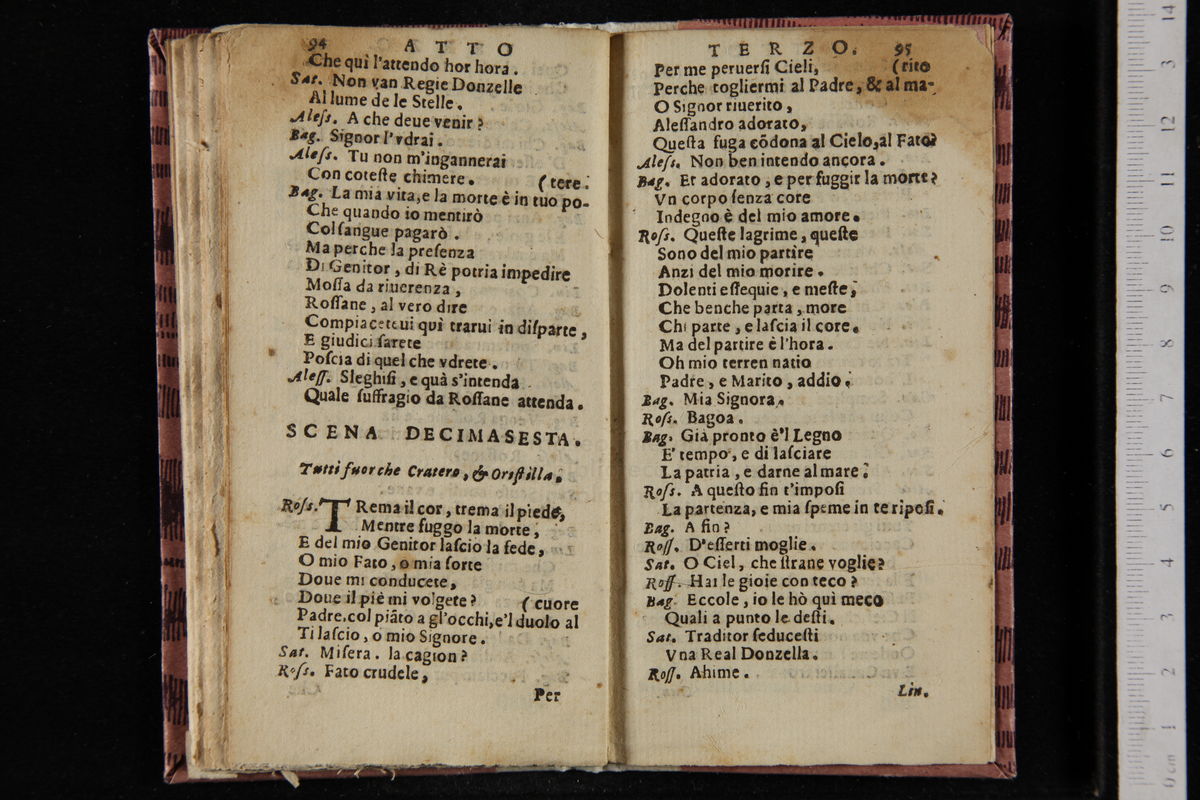 94 ATTO
Che quì l'attendo hor hora.
Sat. Non van Regie Donzelle
Al lume de le Stelle.
Aleſs. A che deue venir?
Bag. Signor l'vdrai.
Aleſs. Tu non m'ingannerai
Con coteſte chimere. (tere.
Bag. La mia vita, e la morte è in tuo po-
Che quando io mentirò
Col ſangue pagarò.
Ma perche la preſenza
Di Genitor, di Rè potria impedire
Moſſa da riuerenza,
Roſſane, al vero dire
Compiaceteui quì trarui in diſparte,
E giudici ſarete
Poſcia di quel che vdrete.
Aleſſ. Sleghiſi, e quà s'intenda
Quale ſuffragio da Roſſane attenda.
SCENA DECIMASESTA.
Tutti fuor che Cratero, & Oriſtilla.
Roſs. TRema il cor, trema il piede,
Mentre fuggo la morte,
E del mio Genitor laſcio la ſede,
O mio Fato, o mia ſorte
Doue mi conducete,
Doue il piè mi volgete? (cuore
Padre, col piãto a gl'occhi, e'l duolo al
Ti laſcio, o mio Signore.
Sat. Miſera. la cagion?
Roſs. Fato crudele,
Per
TERZO. 95
Per me peruerſi Cieli, (rito
Perche togliermi al Padre, & al ma-
O Signor riuerito,
Aleſſandro adorato,
Queſta fuga cõdona al Cielo, al Fato?
Aleſs. Non ben intendo ancora.
Bag. Et adorato, e per fuggir la morte?
Vn corpo ſenza core
Indegno è del mio amore.
Roſs. Queſte lagrime, queſte
Sono del mio partire
Anzi del mio morire.
Dolenti eſſequie, e meſte;
Che benche parta, more
Chi parte, e laſcia il core.
Ma del partire è l'hora.
Oh mio terren natio
Padre, e Marito, addio.
Bag. Mia Signora.
Roſs. Bagoa.
Bag. Già pronto è'l Legno
E' tempo, e di laſciare
La patria, e darne al mare.
Roſs. A queſto fin t'impoſi
La partenza, e mia ſpeme in te ripoſi.
Bag. A fin?
Roſſ. D'eſſerti moglie.
Sat. O Ciel, che ſtrane voglie?
Roſſ. Hai le gioie con teco?
Bag. Eccole, io le hò quì meco
Quali a punto le deſti.
Sat. Traditor ſeduceſti
Vna Real Donzella.
Roſſ. Ahime.
Lin.